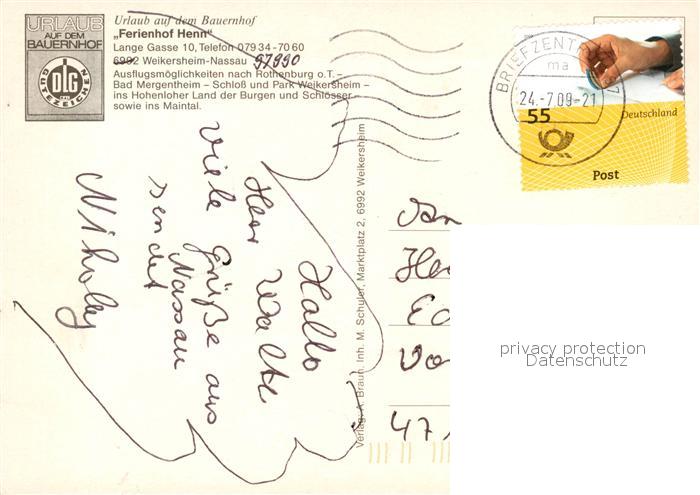 URLAUB
AUF DEM
BAUERNHOF
DLG
GÜTEZEICHEN
Urlaub auf dem Bauernhof
„Ferienhof Henn“
Lange Gasse 10, Telefon 07934-7060
6992 Weikersheim-Nassau 97990
Ausflugsmöglichkeiten nach Rothenburg o.T. –
Bad Mergentheim – Schloß und Park Weikersheim –
ins Hohenloher Land der Burgen und Schlösser
sowie ins Maintal.
Hallo
Herr Walte
viele Grüße aus
Nassau
sendet
Nikolay
Verlag: A. Braun, Inh. M. Schuler, Marktplatz 2, 6992 Weikersheim
BRIEFZENTR
ma
24.-7.09-21
55
Deutschland
Post
An
He
Vo
47
privacy protection
Datenschutz